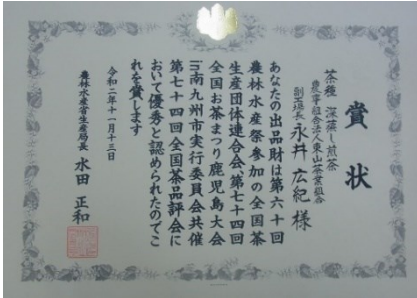 賞状
茶種 深蒸し煎茶
農事組合法人東山茶業組合
副工場長 永井広紀様
あなたの出品財は第六十回
農林水産祭参加の全国茶
生産団体連合会第七十四回
全国お茶まつり鹿児島大会
in南九州市実行委員会共催
第七十四回全国茶品評会に
おいて優秀と認められたのでこ
れを賞します
令和二年十一月十三日
農林水産省生産局長 水田正和